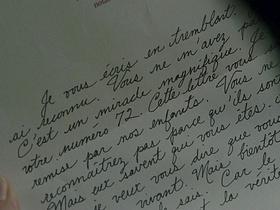 Je vous écris en tremblant.
ai reconnu. Vous ne m'avez pas
C'est un miracle magnifique. Je
votre numero 72. Cette lettre vous
remise par nos enfants. Vous ne
reconnaîtrez pas parce qu'ils sont
Mais eux savent que vous êtes.
veux vous dire que vous
vivant. Mais bientôt
sais. Car le
la vérité